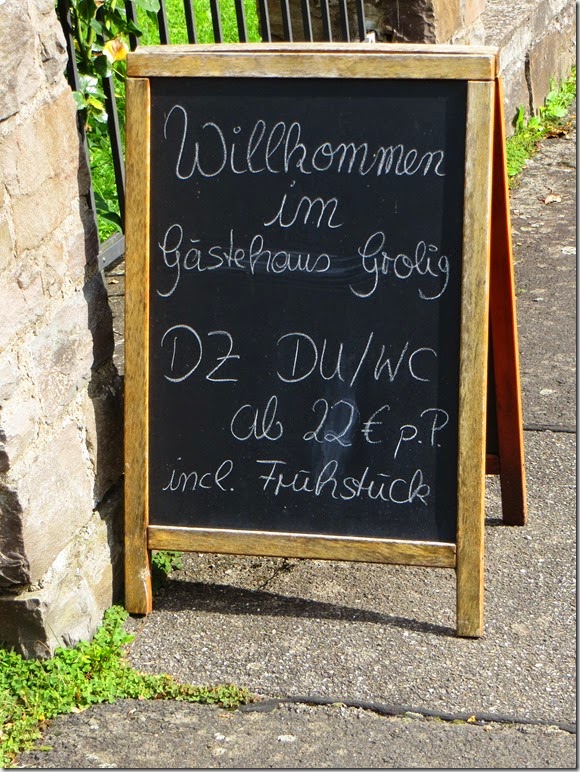 Willkommen
im
Gästehaus Grolig
DZ DU/WC
ab 22 € p.P.
incl. Frühstück